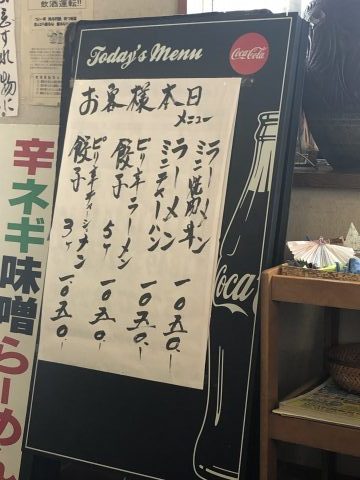 飲酒運転!!
Today's Menu
Coca-Cola
お客様本日
メニュー
ラーメン
ミニ焼肉丼
一〇五〇.
ラーメン
ミニチャーハン
一〇五〇.
ピリ辛ラーメン
餃子 5ケ
一〇五〇.
餃子 3ケ
一〇五〇.
Coca
忘れ物に
辛ネギ味噌らーめん